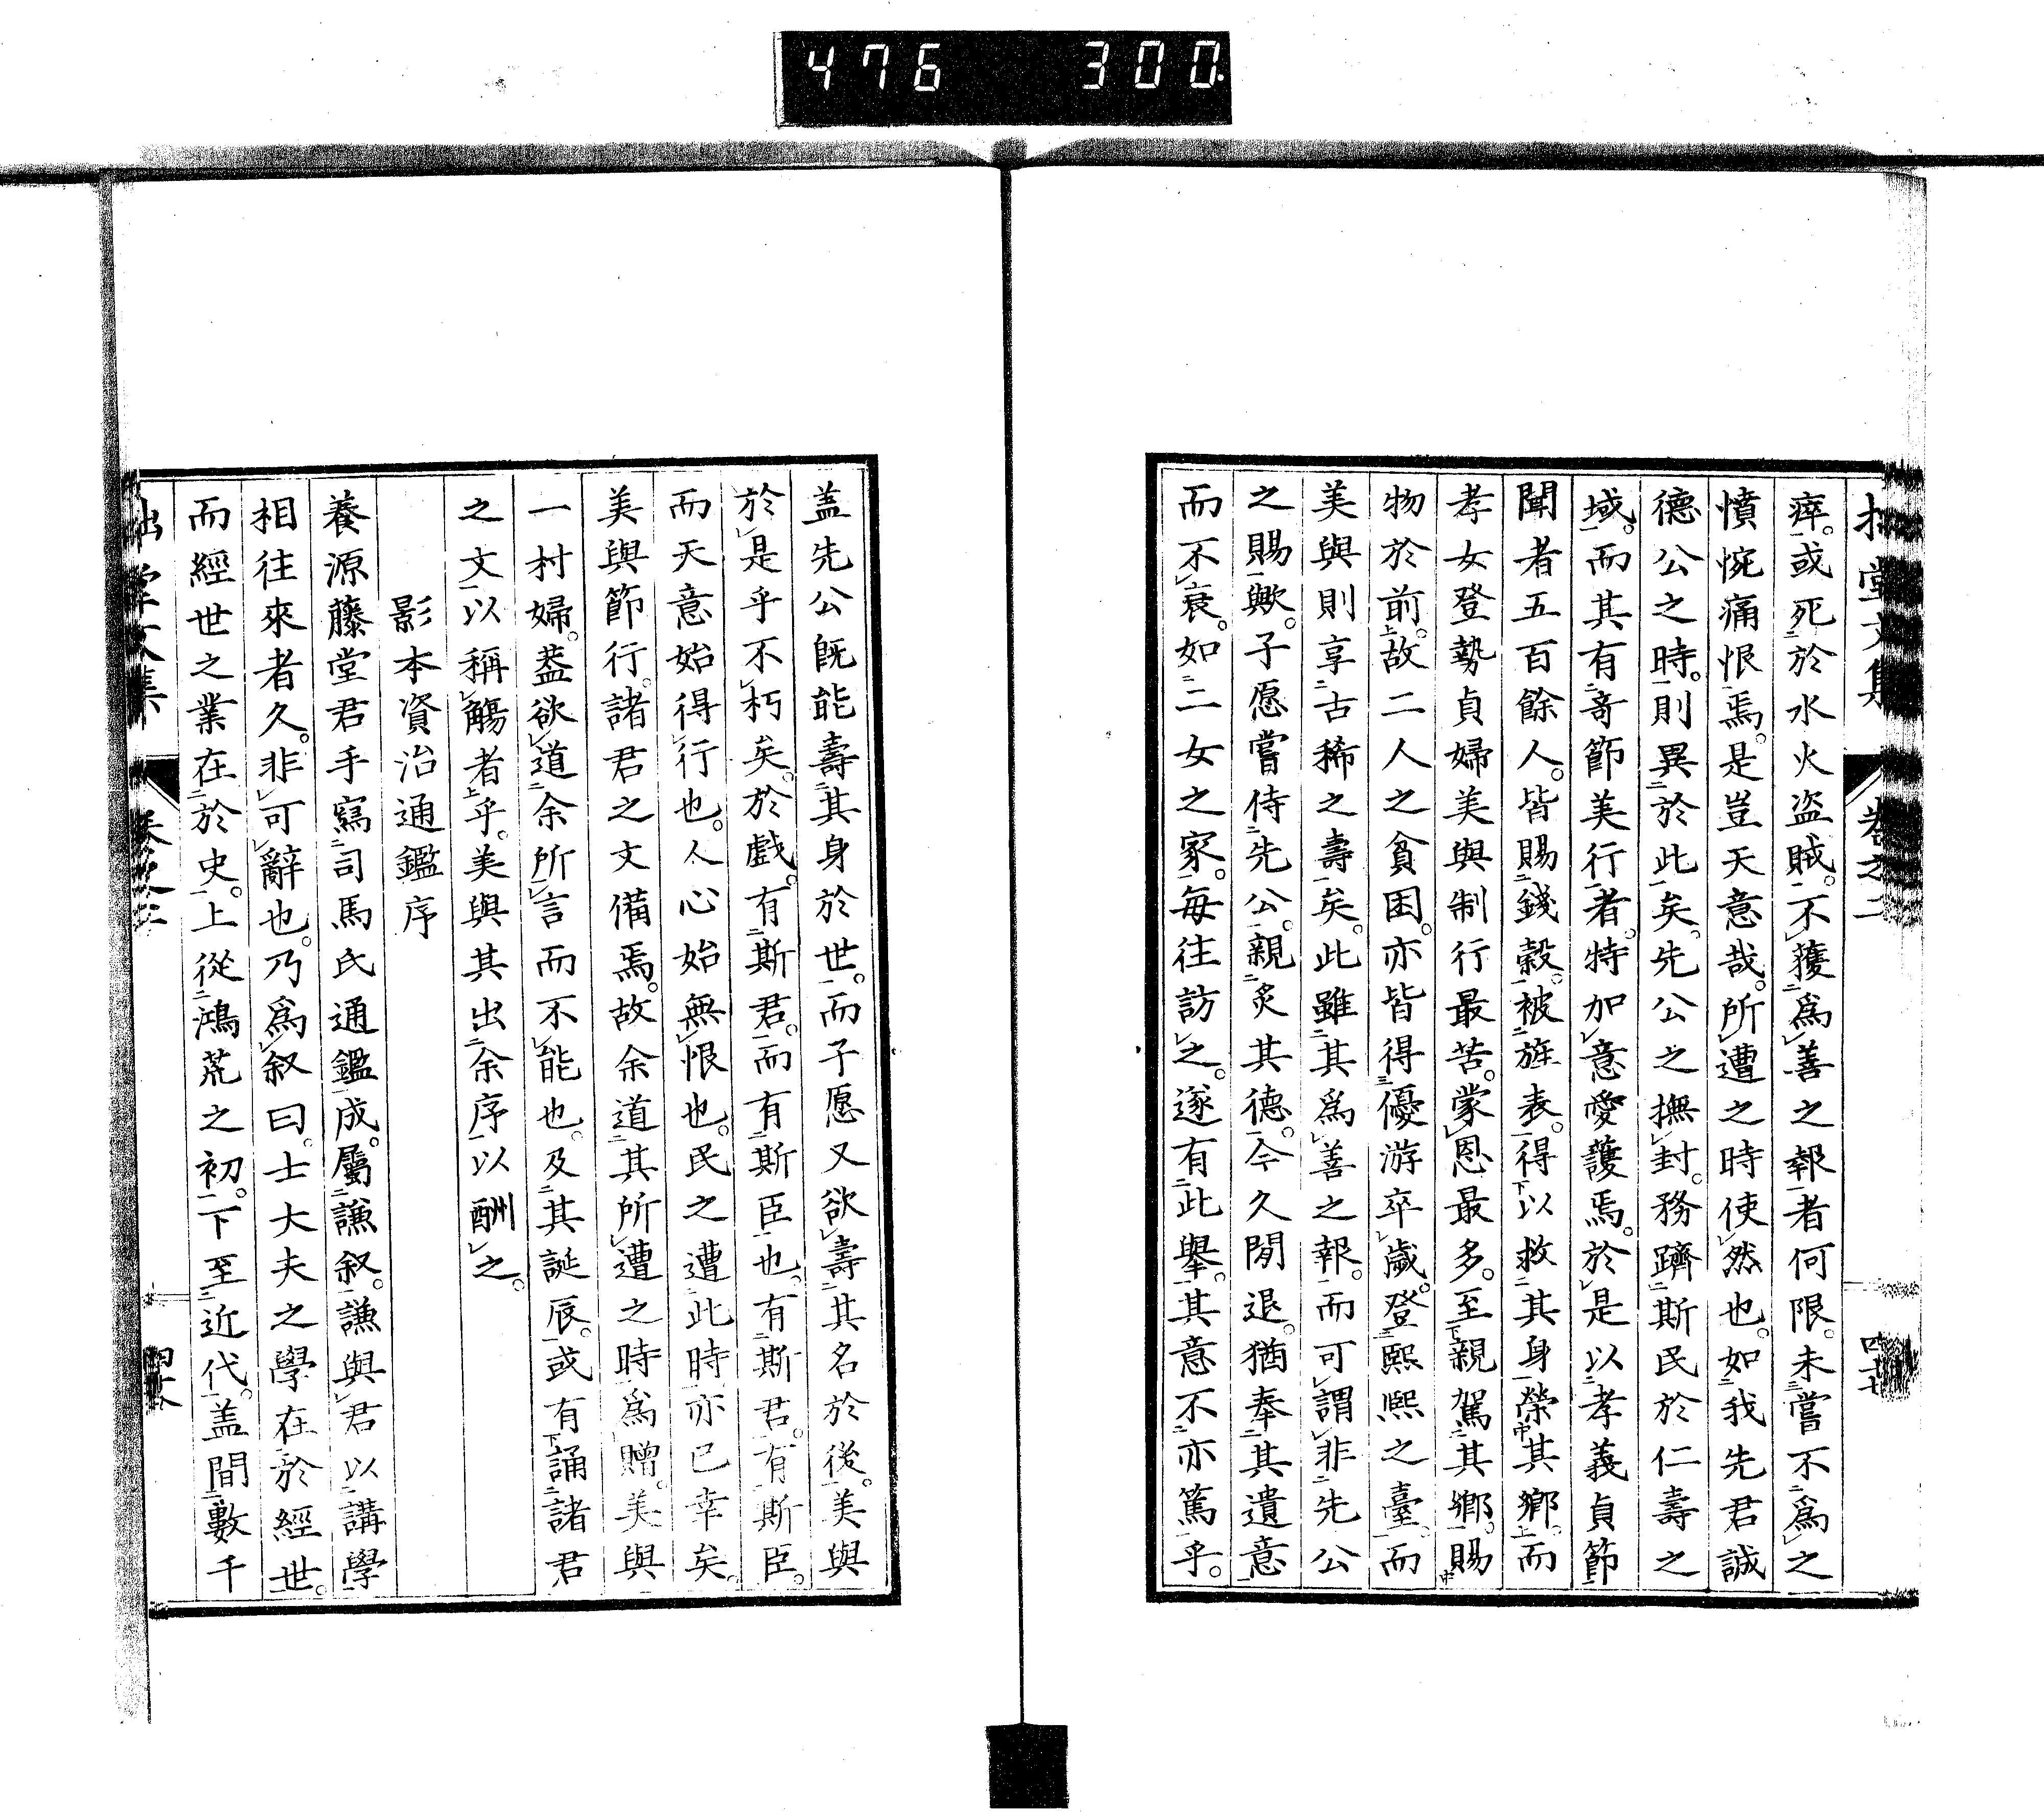 476 300.
堂文集 卷之二
瘁。或死於水火盜賊。不獲爲善之報者何限。未嘗不爲之
憤惋痛恨焉。是豈天意哉。所遭之時使然也。如我先君誠
德公之時。則異於此矣。先公之撫封。務躋斯民於仁壽之
域。而其有奇節美行者。特加意愛護焉。於是以孝義貞節
聞者五百餘人。皆賜錢穀。被旌表。得以救其身榮其鄉。而
孝女登勢貞婦美與制行最苦。蒙恩最多。至親駕其鄉。賜
物於前。故二人之貧困。亦皆得優游卒歲。登熙熙之臺。而
美與則享古稀之壽矣。此雖其爲善之報。而可謂非先公
之賜歟。子愿嘗侍先公。親炙其德。今久閒退。猶奉其遺意
而不衰。如二女之家。每往訪之。遂有此舉。其意不亦篤乎。
盖先公既能壽其身於世。而子愿又欲壽其名於後。美與
於是乎不朽矣。於戲。有斯君。而有斯臣也。有斯君。有斯臣。
而天意始得行也。人心始無恨也。民之遭此時亦已幸矣。
美與節行。諸君之文備焉。故余道其所遭之時爲贈。美與
一村婦。葢欲道余所言而不能也。及其誕辰。或有誦諸君
之文以稱觴者乎。美與其出余序以酬之。
影本資治通鑑序
養源藤堂君手寫司馬氏通鑑成。屬謙叙。謙與君以講學
相往來者久。非可辭也。乃爲叙曰。士大夫之學在於經世。
而經世之業在於史。上從鴻荒之初。下至近代。盖間數千